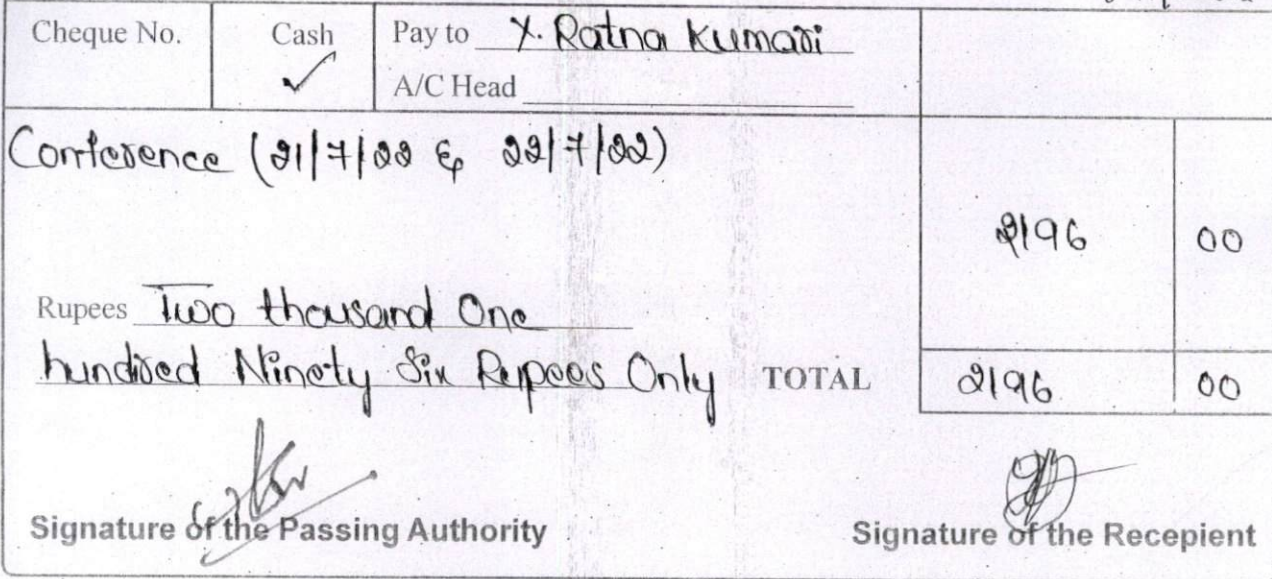 Cheque No. Cash ✓ Pay to Y. Ratna Kumari
A/C Head
Conference (21/7/22 & 22/7/22)
2196 00
Rupees Two thousand One
hundred Ninety Six Rupees Only TOTAL 2196 00
Signature of the Passing Authority Signature of the Recepient